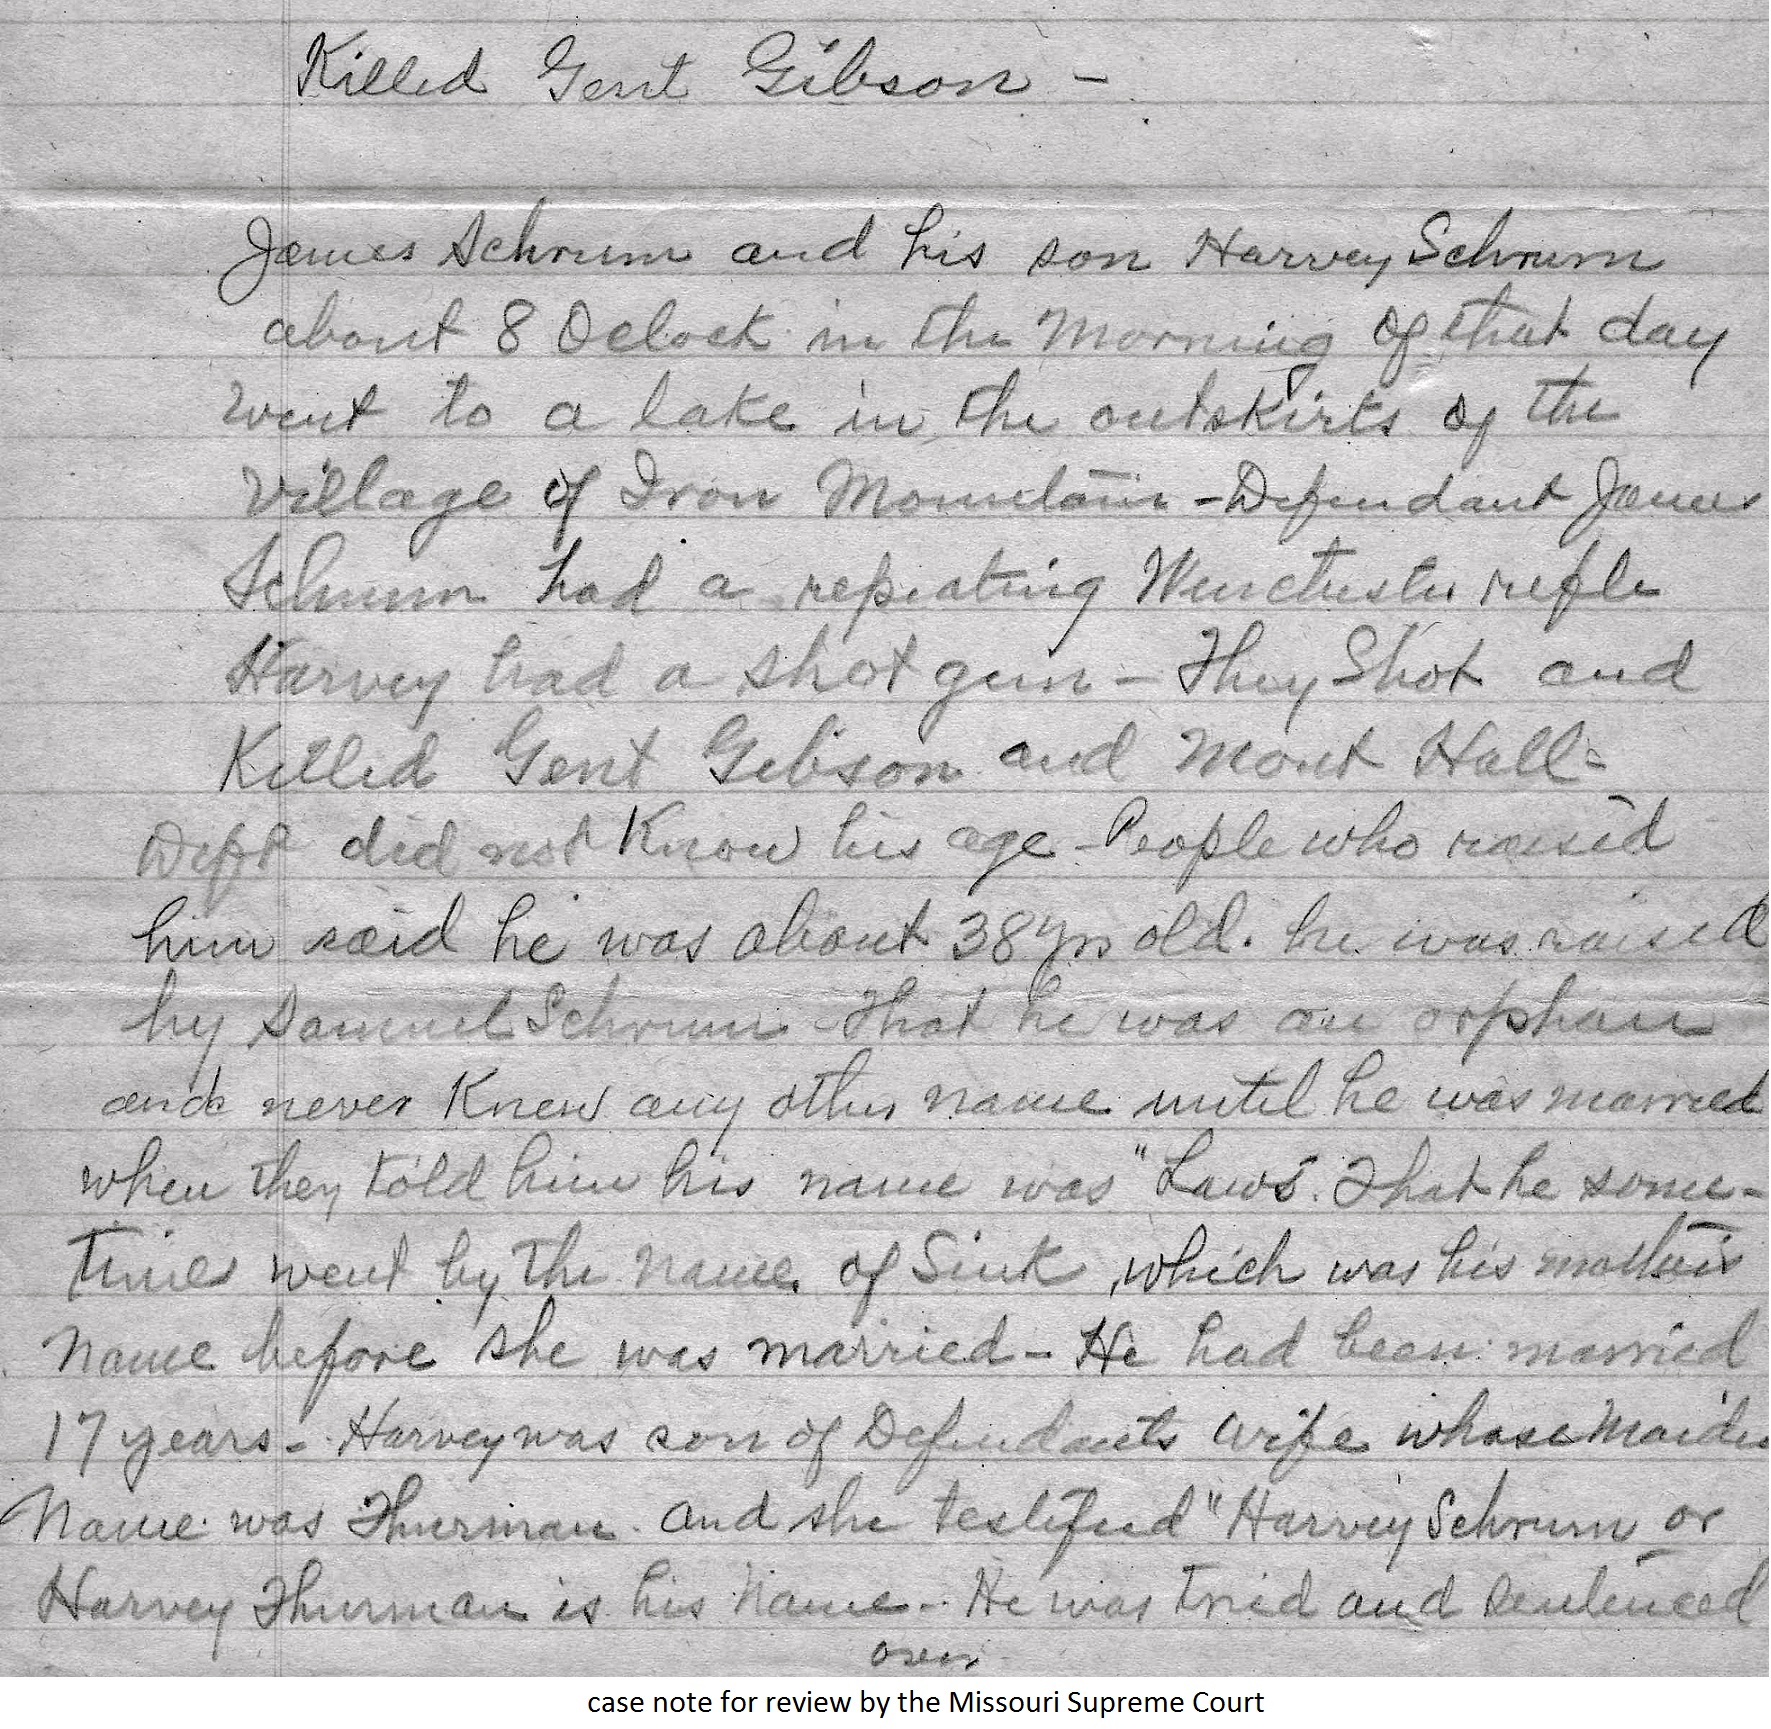 Killed Gent Gibson -
James Schrum and his son Harvey Schrum
about 8 Oclock in the Morning of that day
went to a lake in the outskirts of the
Village of Iron Mountain - Defendant James
Schrum had a repeating Winchester rifle
Harvey had a shot gun - They Shot and
Killed Gent Gibson and Mont Hall -
Deft did not Know his age - People who raised
him said he was about 38 yrs old. he was raised
by Samuel Schrum - That he was an orphan
and never Knew any other name until he was married
when they told him his name was "Laws". That he some-
times went by the name of Sink, which was his mothers
Name before she was married - He had been married
17 years - Harvey was son of Defendants wife whose Maiden
Name was Thurman and she testified "Harvey Schrum or
Harvey Thurman is his Name - He was tried and sentenced
over
case note for review by the Missouri Supreme Court